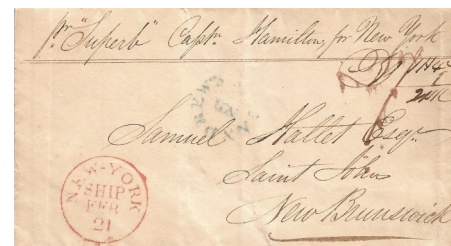 pr "Superb" Captn. Hamilton, for New York
Samuel Hallet Esqr.
Saint Johns
New Brunswick
NEW-YORK
SHIP
FEB
21